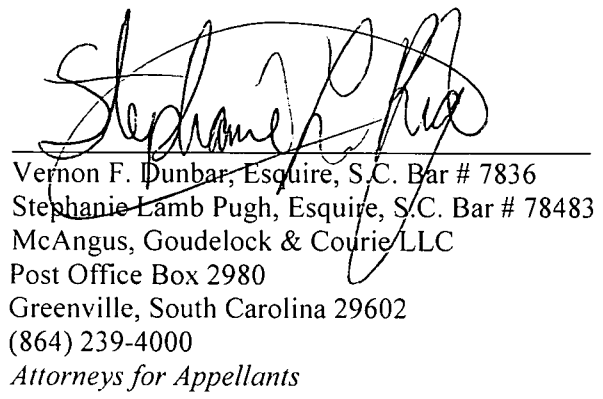 Stephanie L. Pugh
Vernon F. Dunbar, Esquire, S.C. Bar # 7836
Stephanie Lamb Pugh, Esquire, S.C. Bar # 78483
McAngus, Goudelock & Courie LLC
Post Office Box 2980
Greenville, South Carolina 29602
(864) 239-4000
Attorneys for Appellants